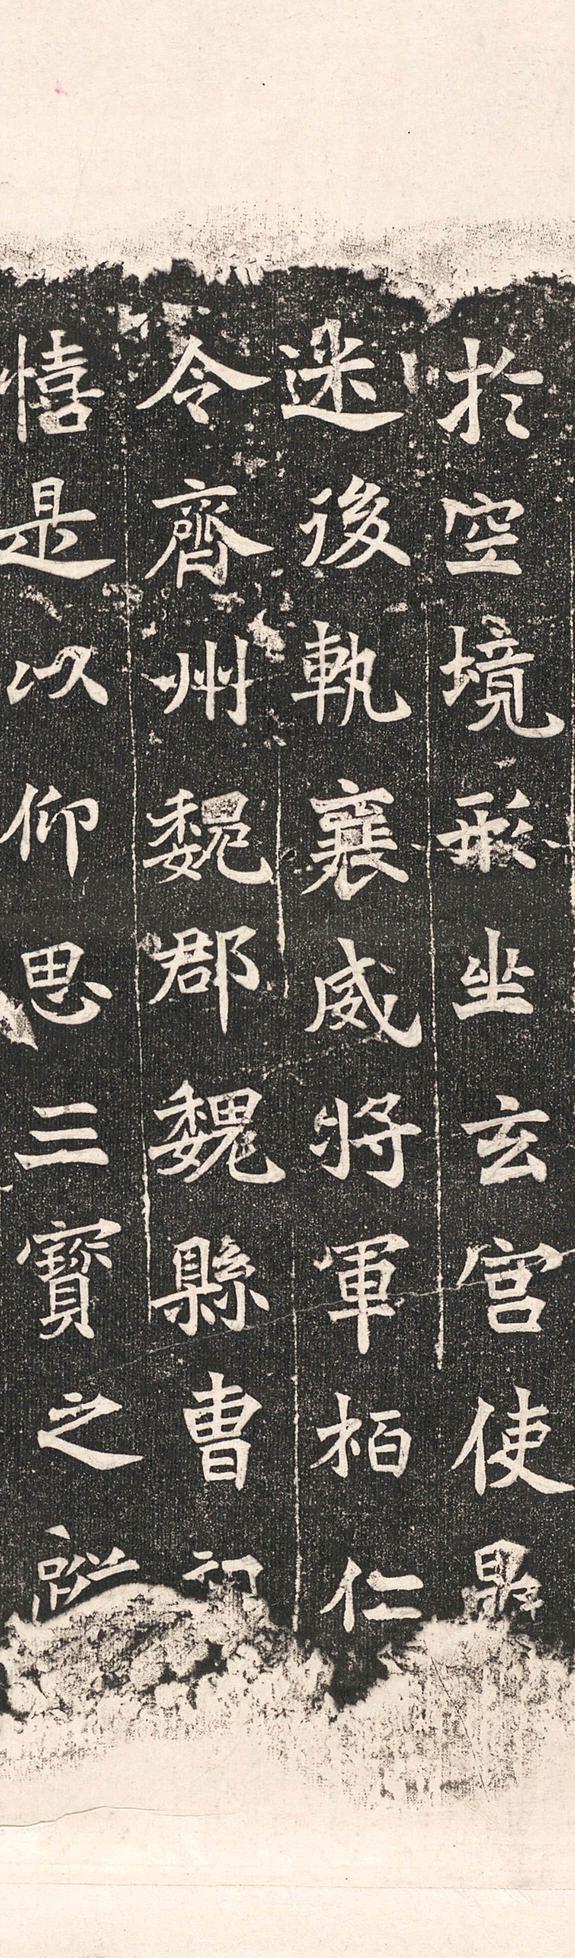 於空境形坐玄宫使
迷後軌襄威將軍柏仁
令齊州魏郡魏縣曹
憘是以仰思三寶之蹤